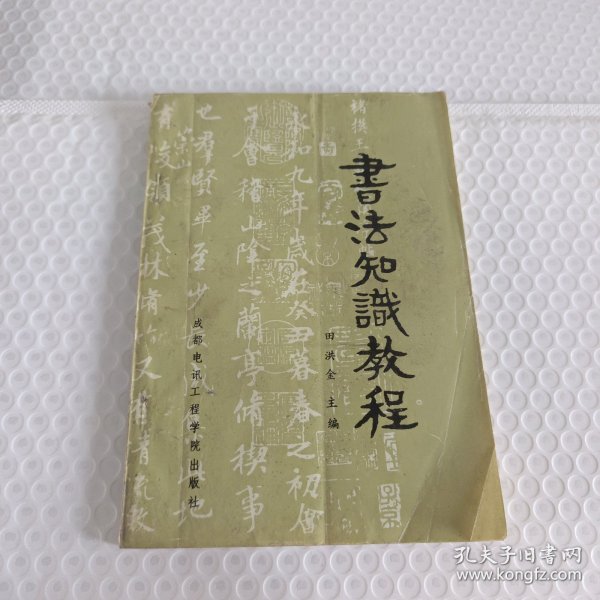 書法知識教程
田洪金 主编
成都电讯工程学院出版社
褚摸王
永和九年歲在癸丑暮春之初會
于會稽山陰之蘭亭脩稧事
也群賢畢至少
領茂林脩竹又有清流激
孔夫子旧书网
www.kongfz.com